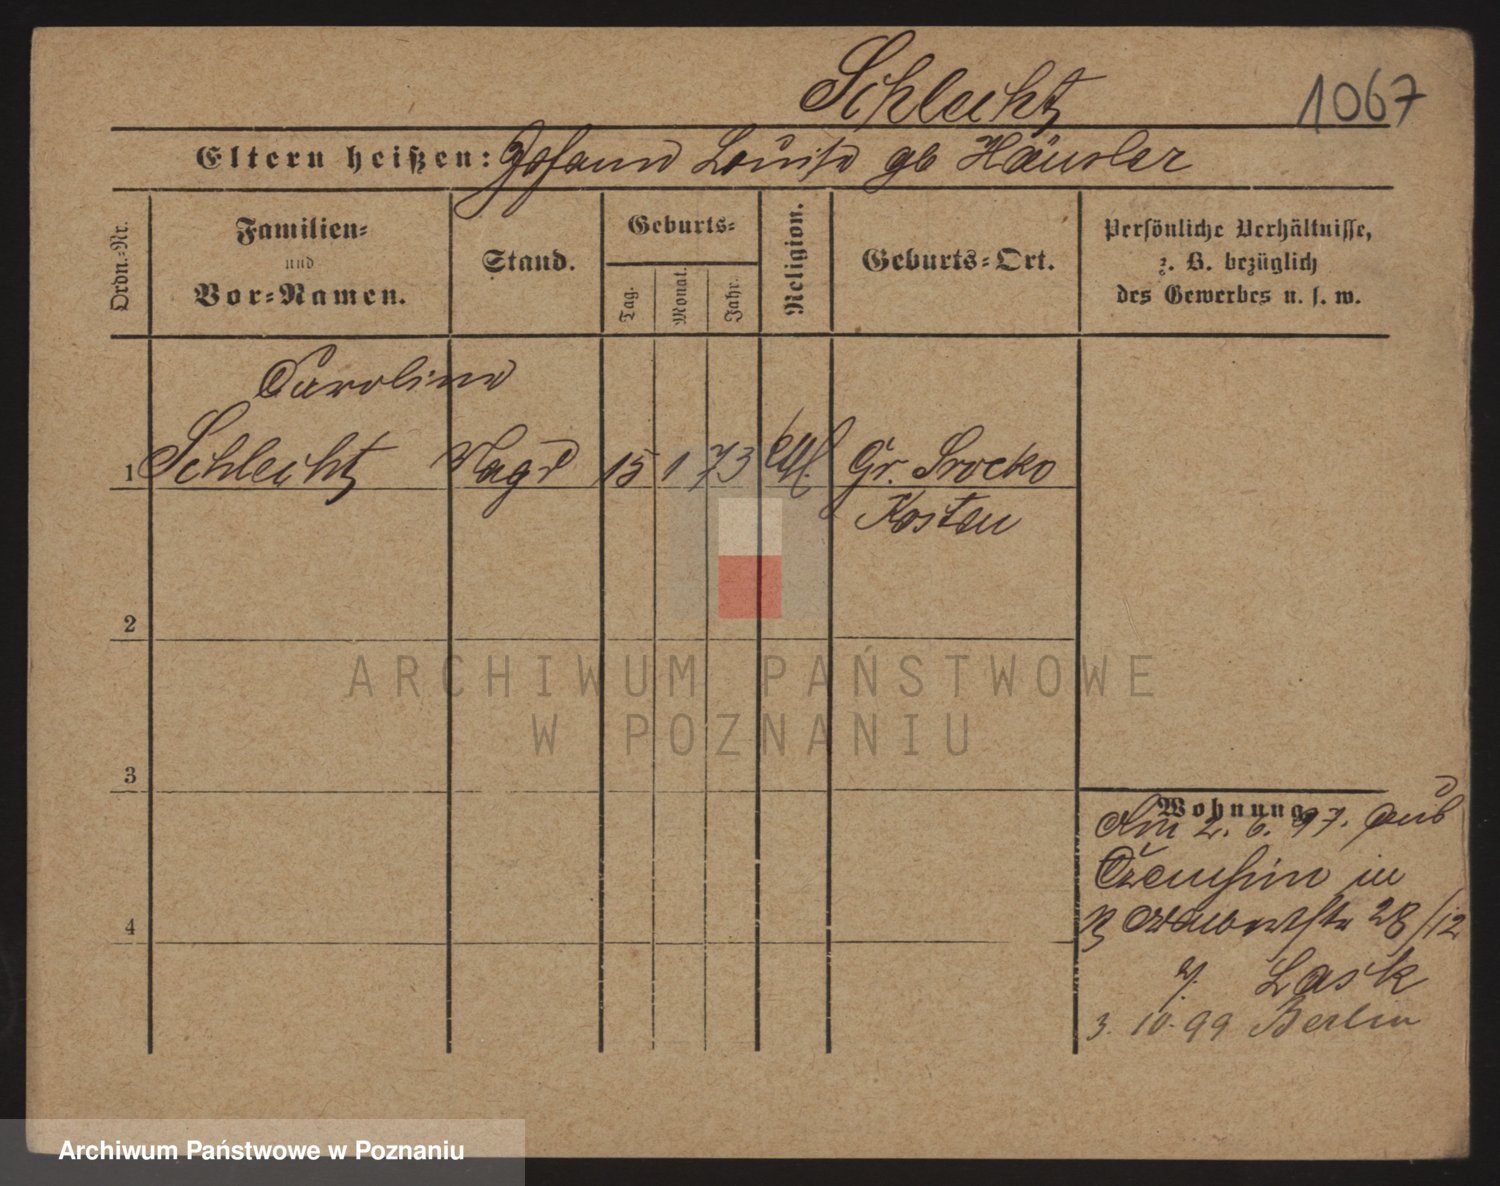 Schlecht
1067
Eltern heißen: Johann Louise gb Häusler
Ordn.-Nr.
Familien-
und
Vor-Namen.
Stand.
Geburts-
Tag.
Monat.
Jahr.
Religion.
Geburts-Ort.
Persönliche Verhältnisse,
z. B. bezüglich
des Gewerbes u. s. w.
Caroline
1 Schlecht Magd 15 1 73 Gr. Srocko
Kosten
2
3
4
ARCHIWUM PAŃSTWOWE
W POZNANIU
Wohnung
Am 2. 6. 97. aus
in
28/12
Lask
3. 10. 99 Berlin
Archiwum Państwowe w Poznaniu